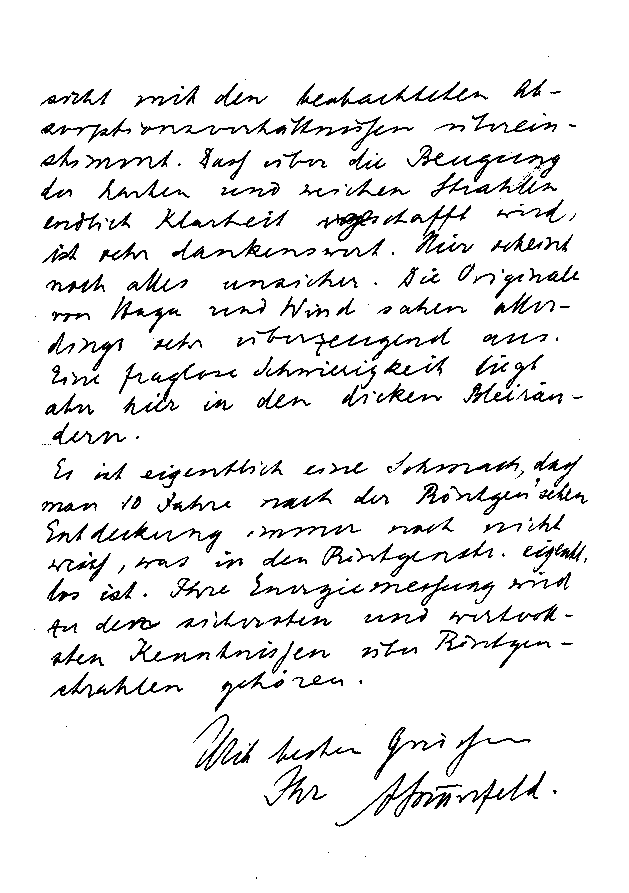 nicht mit den beobachteten Ab-
sorptionsverhältnissen überein-
stimmt. Dass über die Beugung
der harten und weichen Strahlen
endlich Klarheit geschafft wird,
ist sehr dankenswert. Hier scheint
noch alles unsicher. Die Originale
von Haga und Wind sahen aller-
dings sehr überzeugend aus.
Eine fraglose Schwierigkeit liegt
aber hier in den dicken Bleirän-
dern.
Es ist eigentlich eine Schmach, dass
man 10 Jahre nach der Röntgen'schen
Entdeckung immer noch nicht
weiss, was in den Röntgenstr. eigentl.
los ist. Ihre Energiemessung wird
zu den sichersten und wertvoll-
sten Kenntnissen über Röntgen-
strahlen gehören.
Mit besten Grüssen
Ihr ASommerfeld.